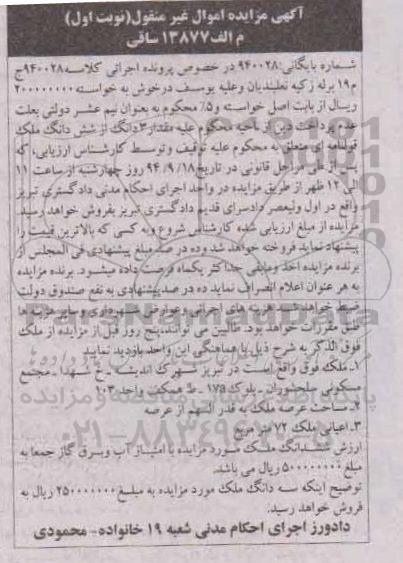 آگهی مزایده اموال غیر منقول(نوبت اول)
م الف ۱۳۸۷۷ ساقی
شماره بایگانی:۹۴۰۰۲۸ در خصوص پرونده اجرائی کلاسه ۹۴۰۰۲۸ج
م۱۹ برله زکیه نعلبندیان وعلیه یوسف درخوش به خواسته ۲۰۰۰۰۰۰۰۰
ریسال از بابت اصل خواسته و۵٪ محکوم به بعنوان نیم عشر دولتی بعلت
عدم پرداخت دین از ناحیه محکوم علیه مقدار۳دانگ از شش دانگ ملک
قولنامه ای متعلق به محکوم علیه توقیف و توسط کارشناس ارزیابی، که
پس از طی مراحل قانونی در تاریخ۹۴/۹/۱۸ روز چهارشنبه از ساعت ۱۱
الی ۱۲ ظهر از طریق مزایده در واحد اجرای احکام مدنی دادگستری تبریز
واقع در اول ولیعصر دادسرای قدیم دادگستری تبریز بفروش خواهد رسید.
مزایده از مبلغ ارزیابی شده کارشناس شروع و به کسی که بالاترین قیمت را
پیشنهاد نماید فروخته خواهد شد و ده در صد مبلغ پیشنهادی فی المجلس از
برنده مزایده اخذ ومابقی حداکثر یکماه فرصت داده میشود. برنده مزایده
به هر عنوان اعلام انصراف نماید ده در صد پیشنهادی به نفع صندوق دولت
ضبط خواهد شد. هزینه های اجرائی وعوارض شهرداری و سایر هزینه ها
طبق مقررات خواهد بود. طالبین می توانند،پنج روز قبل از مزایده از ملک
فوق الذکر به شرح ذیل با هماهنگی این واحد بازدید نمایند
۱- ملک فوق واقع است در تبریز شهرک اندیشه - خ شهدا - مجتمع
مسکونی ملحشوران - بلوک ۱۷۵ - ط همکف واحد ۱۰۳
۲- مساحت عرصه ملک به قدر السهم از عرصه
۳- اعیانی ملک ۷۲ متر مربع
ارزش ششدانگ ملک مورد مزایده با امتیاز آب وبرق گاز جمعا به
مبلغ ۵۰۰۰۰۰۰۰۰ ریال می باشد.
توضیح اینکه سه دانگ ملک مورد مزایده به مبلغ ۲۵۰۰۰۰۰۰۰ ریال به
فروش خواهد رسید.
دادورز اجرای احکام مدنی شعبه ۱۹ خانواده- محمودی